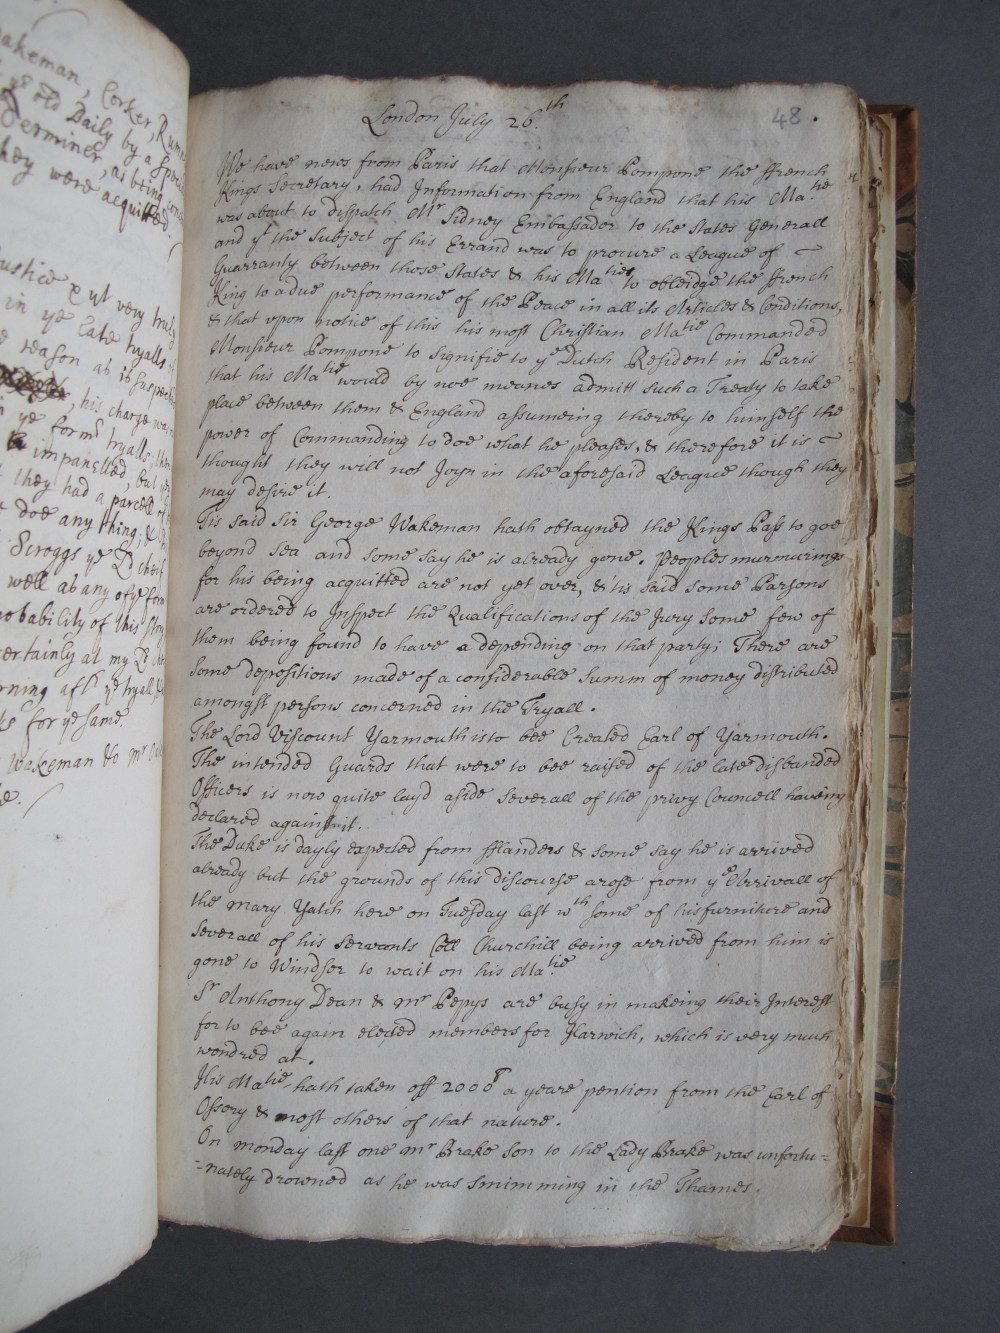 akeman, Corker, Rum
ye old Baily by a spe
Terminer, as being con
hey were acquitted.
ustice & yt very truly
in ye late tryalls
e reason as is suspect
, his charge was
ye form tryalls,
impanelled, but
they had a parcell of
doe any thing, &
Scroggs ye Ld cheif
well as any of ye form
robability of this stor
ertainly at my Ld
rning aft ye tryall,
for ye same.
Wakeman &
London July 26th
48.
We have news from Paris that Monsieur Pompone the ffrench
Kings Secretary, had Information from England that his Matie
was about to dispatch Mr Sidney Embassador to the States Generall
and yt the Subject of his Errand was to procure a League of ~
Guarranty between those States & his Maties to obleidge the ffrench
King to a due performance of the Peace in all its Articles & Conditions,
& that vpon notice of this his most Christian Matie Commanded
Monsieur Pompone to signifie to ye Dutch Resident in Paris
that his Matie would by noe meanes admitt such a Treaty to take
place between them & England assumeing thereby to himself the
power of Commanding to doe what he pleases, & therefore it is ~
thought they will not Joyn in the aforesaid League though they
may desire it.
Tis said Sir George Wakeman hath obtayned the Kings Pass to goe
beyond sea and some say he is already gone. Peoples murmurings
for his being acquitted are not yet over, & 'tis said some Parsons
are ordered to Inspect the Qualifications of the Jury some few of
them being found to have a depending on that party; There are
some depositions made of a considerable Summ of money distributed
amongst persons concerned in the Tryall.
The Lord Viscount Yarmouth is to bee Created Earl of Yarmouth.
The intended Guards that were to bee raised of the late disbanded
Officers is now quite layd aside severall of the privy Councell haveing
declared against it.
The Duke is dayly expected from fflanders & some say he is arrived
already but the grounds of this discourse arose from ye Arrivall of
the Mary Yatch here on Tuesday last wth some of his furniture and
severall of his servants Coll Churchill being arrived from him is
gone to Windsor to wait on his Matie
Sr Anthony Dean & Mr Pepys are busy in makeing their Interest
for to bee again elected members for Harwich, which is very much
wondred at.
His Matie hath taken off 2000 a yeare pention from the Earl of
Ossory & most others of that nature.
On monday last one Mr Brake son to the Lady Brake was unfortu=
=nately drowned as he was swimming in the Thames.